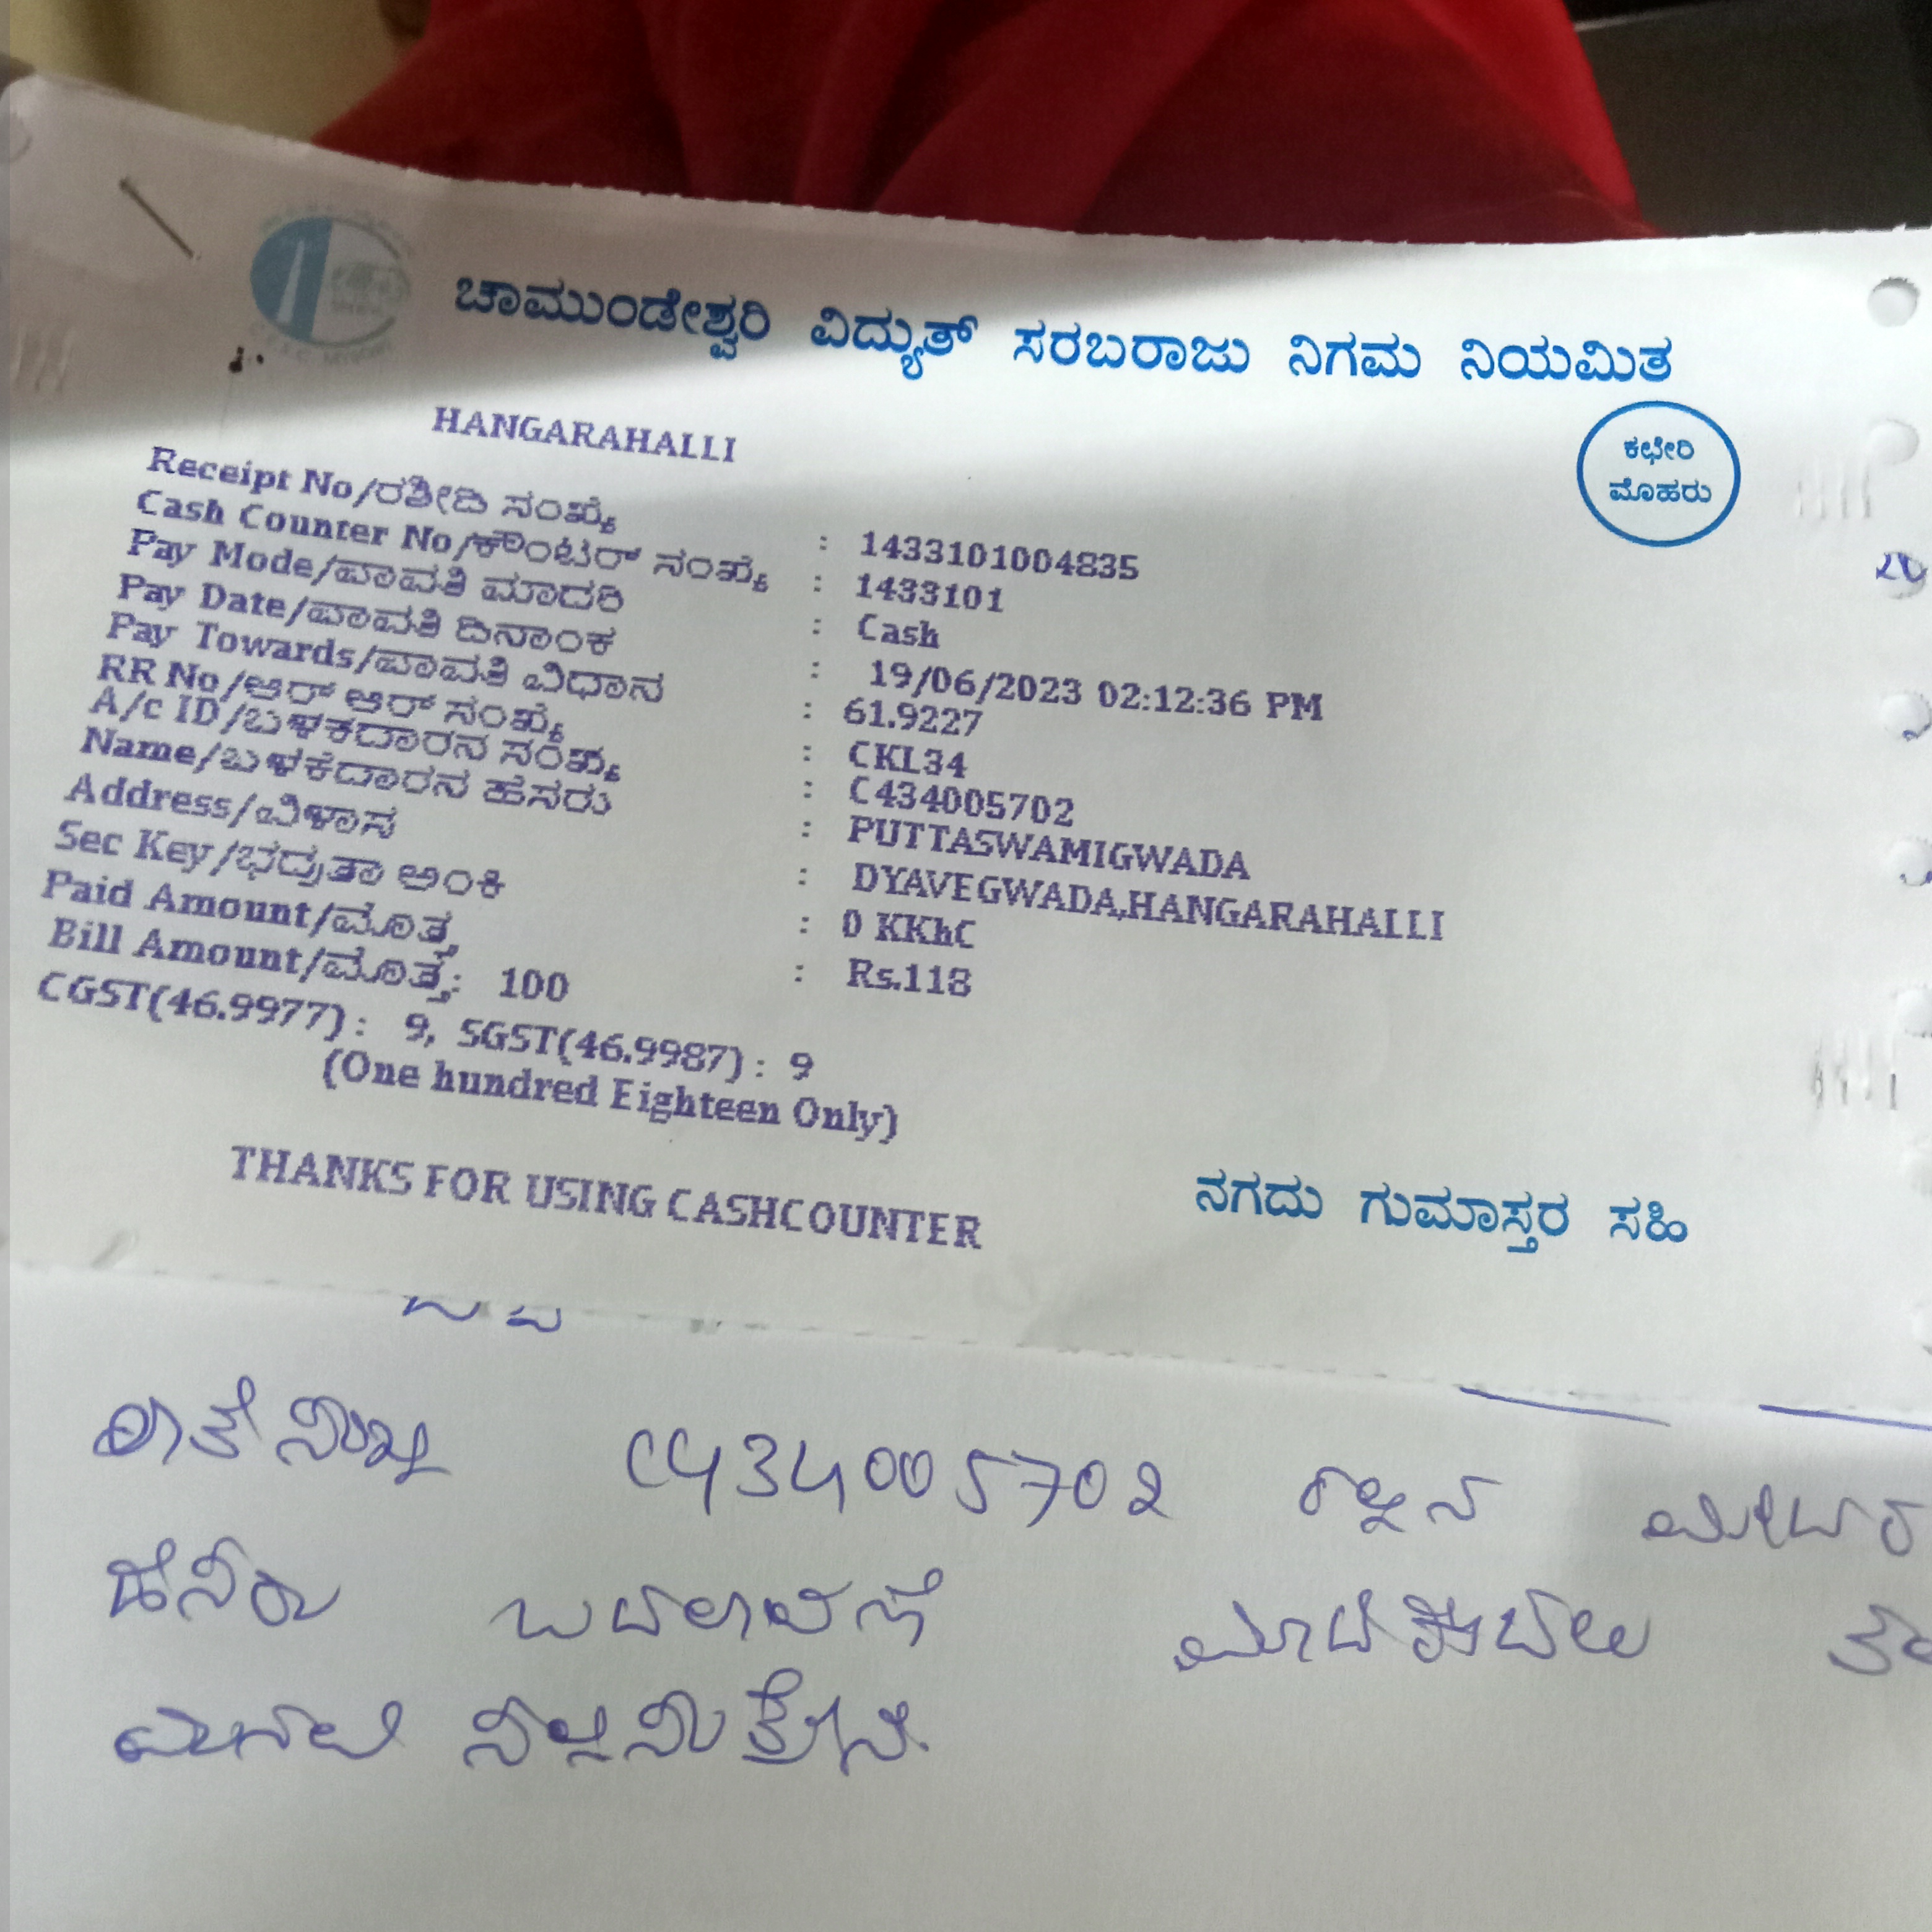 ಚಾಮುಂಡೇಶ್ವರಿ ವಿದ್ಯುತ್ ಸರಬರಾಜು ನಿಗಮ ನಿಯಮಿತ
ಕಛೇರಿ
ಮೊಹರು
HANGARAHALLI
Receipt No/ರಶೀದಿ ಸಂಖ್ಯೆ : 1433101004835
Cash Counter No/ಕೌಂಟರ್ ಸಂಖ್ಯೆ : 1433101
Pay Mode/ಪಾವತಿ ಮಾದರಿ : Cash
Pay Date/ಪಾವತಿ ದಿನಾಂಕ : 19/06/2023 02:12:36 PM
Pay Towards/ಪಾವತಿ ವಿಧಾನ : 61.9227
RR No/ಆರ್ ಆರ್ ಸಂಖ್ಯೆ : CKL34
A/c ID/ಬಳಕದಾರನ ಸಂಖ್ಯೆ : C434005702
Name/ಬಳಕೆದಾರನ ಹೆಸರು : PUTTASWAMIGWADA
Address/ವಿಳಾಸ : DYAVEGWADA,HANGARAHALLI
Sec Key/ಭದ್ರತಾ ಅಂಕಿ : 0 KKhC
Paid Amount/ಮೊತ್ತ : Rs.118
Bill Amount/ಮೊತ್ತ: 100
CGST(46.9977): 9, SGST(46.9987): 9
(One hundred Eighteen Only)
THANKS FOR USING CASHCOUNTER
ನಗದು ಗುಮಾಸ್ತರ ಸಹಿ
C434005702
ಬದಲಾವಣೆ